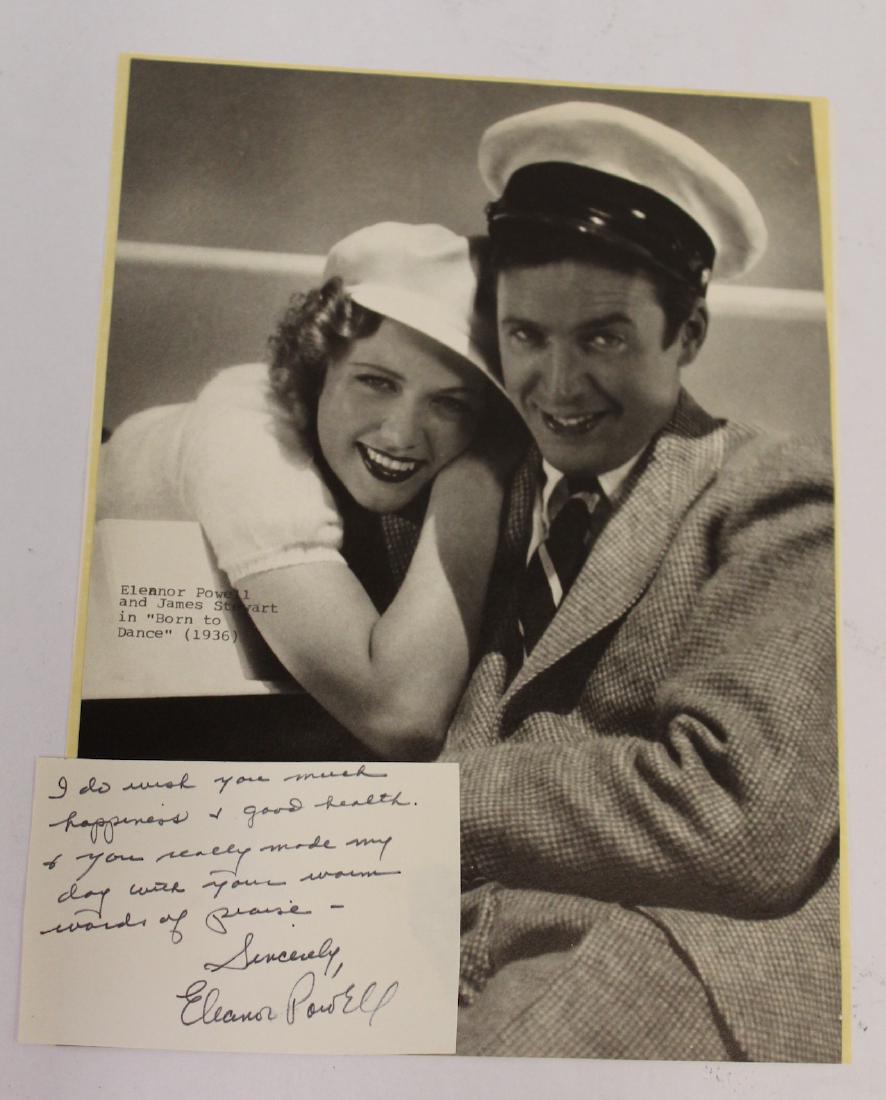 Eleanor Powell
and James Stewart
in "Born to
Dance" (1936)
I do wish you much
happiness & good health.
& you really made my
day with your warm
words of praise –
Sincerely,
Eleanor Powell